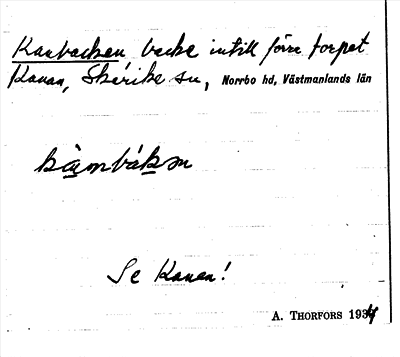 Kanbacken backe intill förra torpet
Kanan, Skerike sn, Norrbo hd, Västmanlands län
Se Kanan!
A. THORFORS 1934